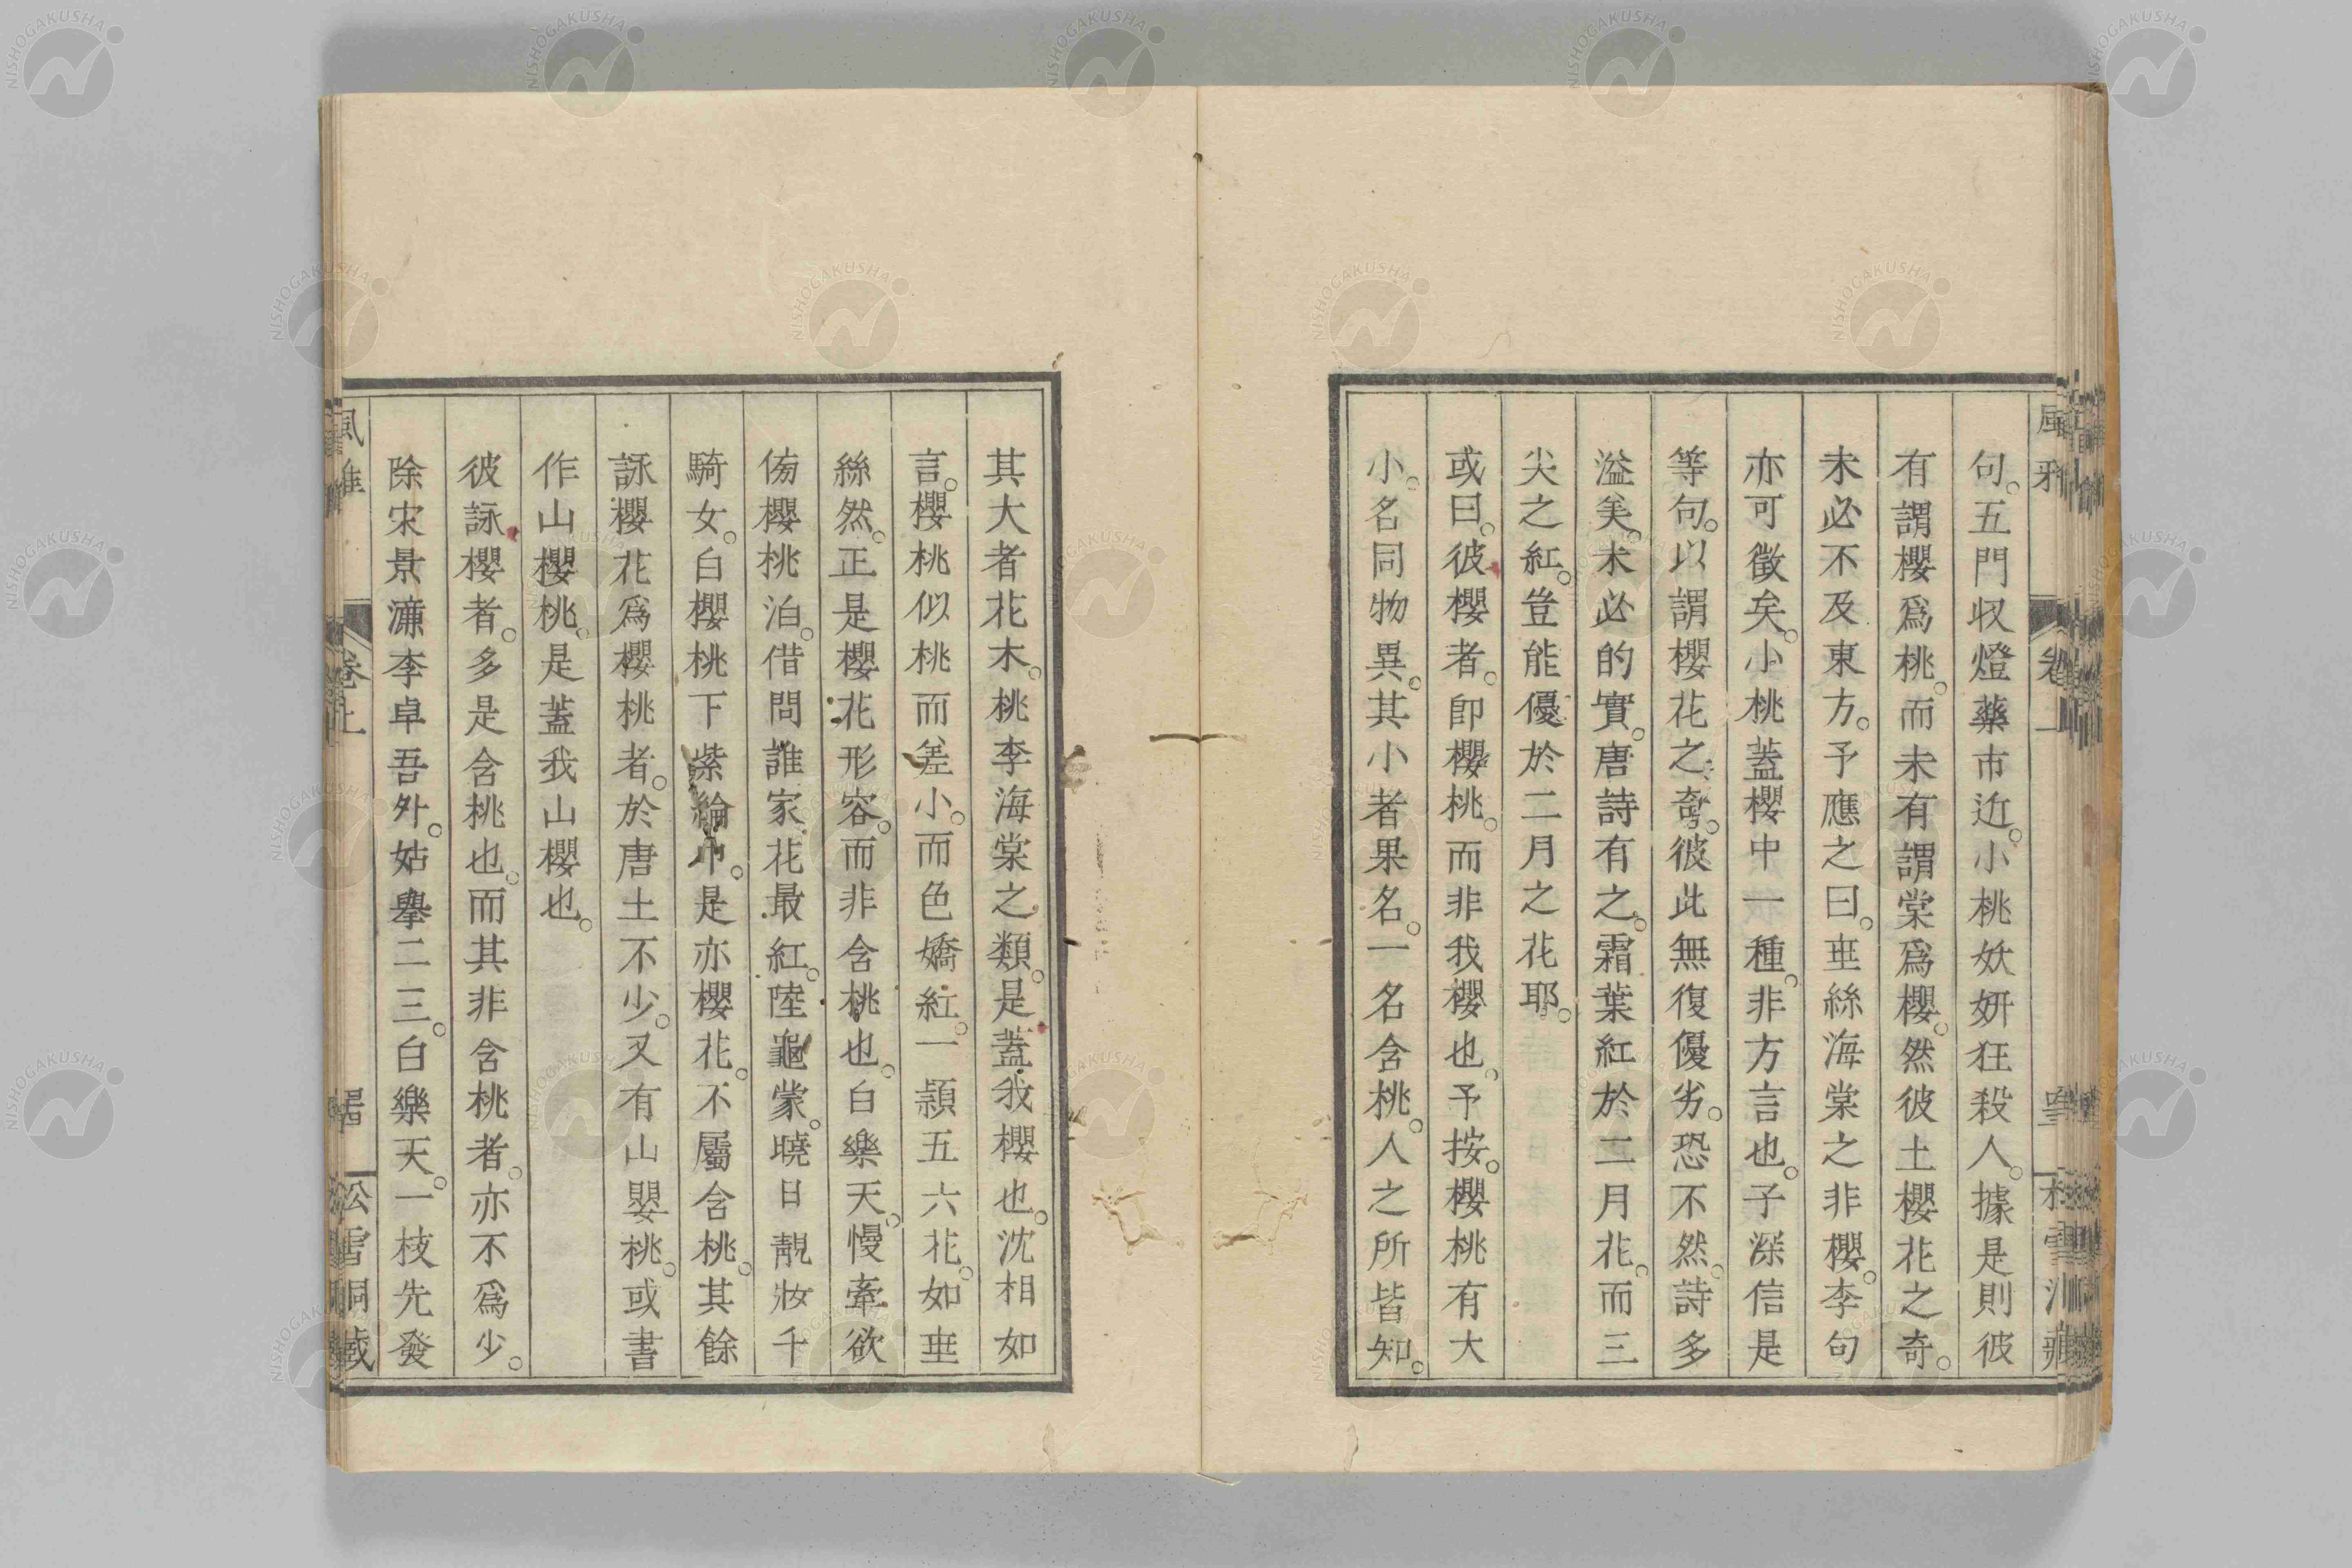 句。五門収燈藥市近。小桃妖妍狂殺人。據是則彼
有謂櫻爲桃。而未有謂棠爲櫻。然彼土櫻花之奇。
未必不及東方。予應之曰。垂絲海棠之非櫻。李句
亦可徵矣。小桃蓋櫻中一種。非方言也。子深信是
等句。以謂櫻花之奇。彼此無復優劣。恐不然。詩多
溢美。未必的實。唐詩有之。霜葉紅於二月花。而三
尖之紅。豈能優於二月之花耶。
或曰。彼櫻者。卽櫻桃。而非我櫻也。予按。櫻桃有大
小。名同物異。其小者果名。一名含桃。人之所皆知。
其大者花木。桃李海棠之類。是蓋我櫻也。沈相如
言。櫻桃似桃而差小。而色嬌紅。一顆五六花。如垂
絲然。正是櫻花形容。而非含桃也。白樂天。慢牽欲
傍櫻桃泊。借問誰家花最紅。陸龜蒙。曉日靚妝千
騎女。白櫻桃下紫綸巾。是亦櫻花。不屬含桃。其餘
詠櫻花爲櫻桃者。於唐土不少。又有山嬰桃。或書
作山櫻桃。是蓋我山櫻也。
彼詠櫻者。多是含桃也。而其非含桃者。亦不爲少。
除宋景濂李卓吾外。姑擧二三。白樂天。一枝先發
風雅 卷上 松雪洞藏